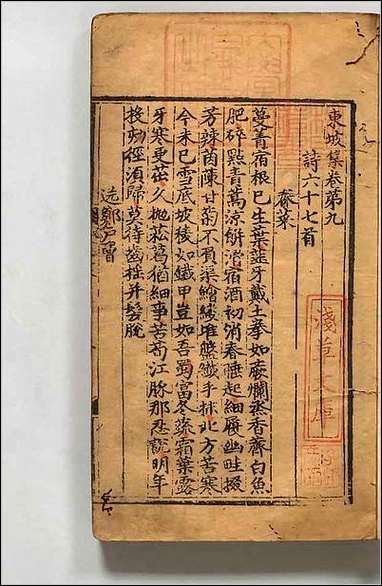 東坡集卷第九
詩六十七首
春菜
蔓菁宿根已生葉韮牙戴土拳如蕨爛蒸香薺白魚
肥碎點青蒿涼餅滑宿酒初消春睡起細履幽畦掇
芳辣茵陳甘菊不負渠鱠縷堆盤纖手抹北方苦寒
今未已雪底波稜如鐵甲豈如吾蜀富冬蔬霜葉露
牙寒更茁久抛菘葛猶細事苦筍江豚那忍說明年
投劾徑須歸莫待齒搖并髮脫
送鄭戶曹
淺草文庫